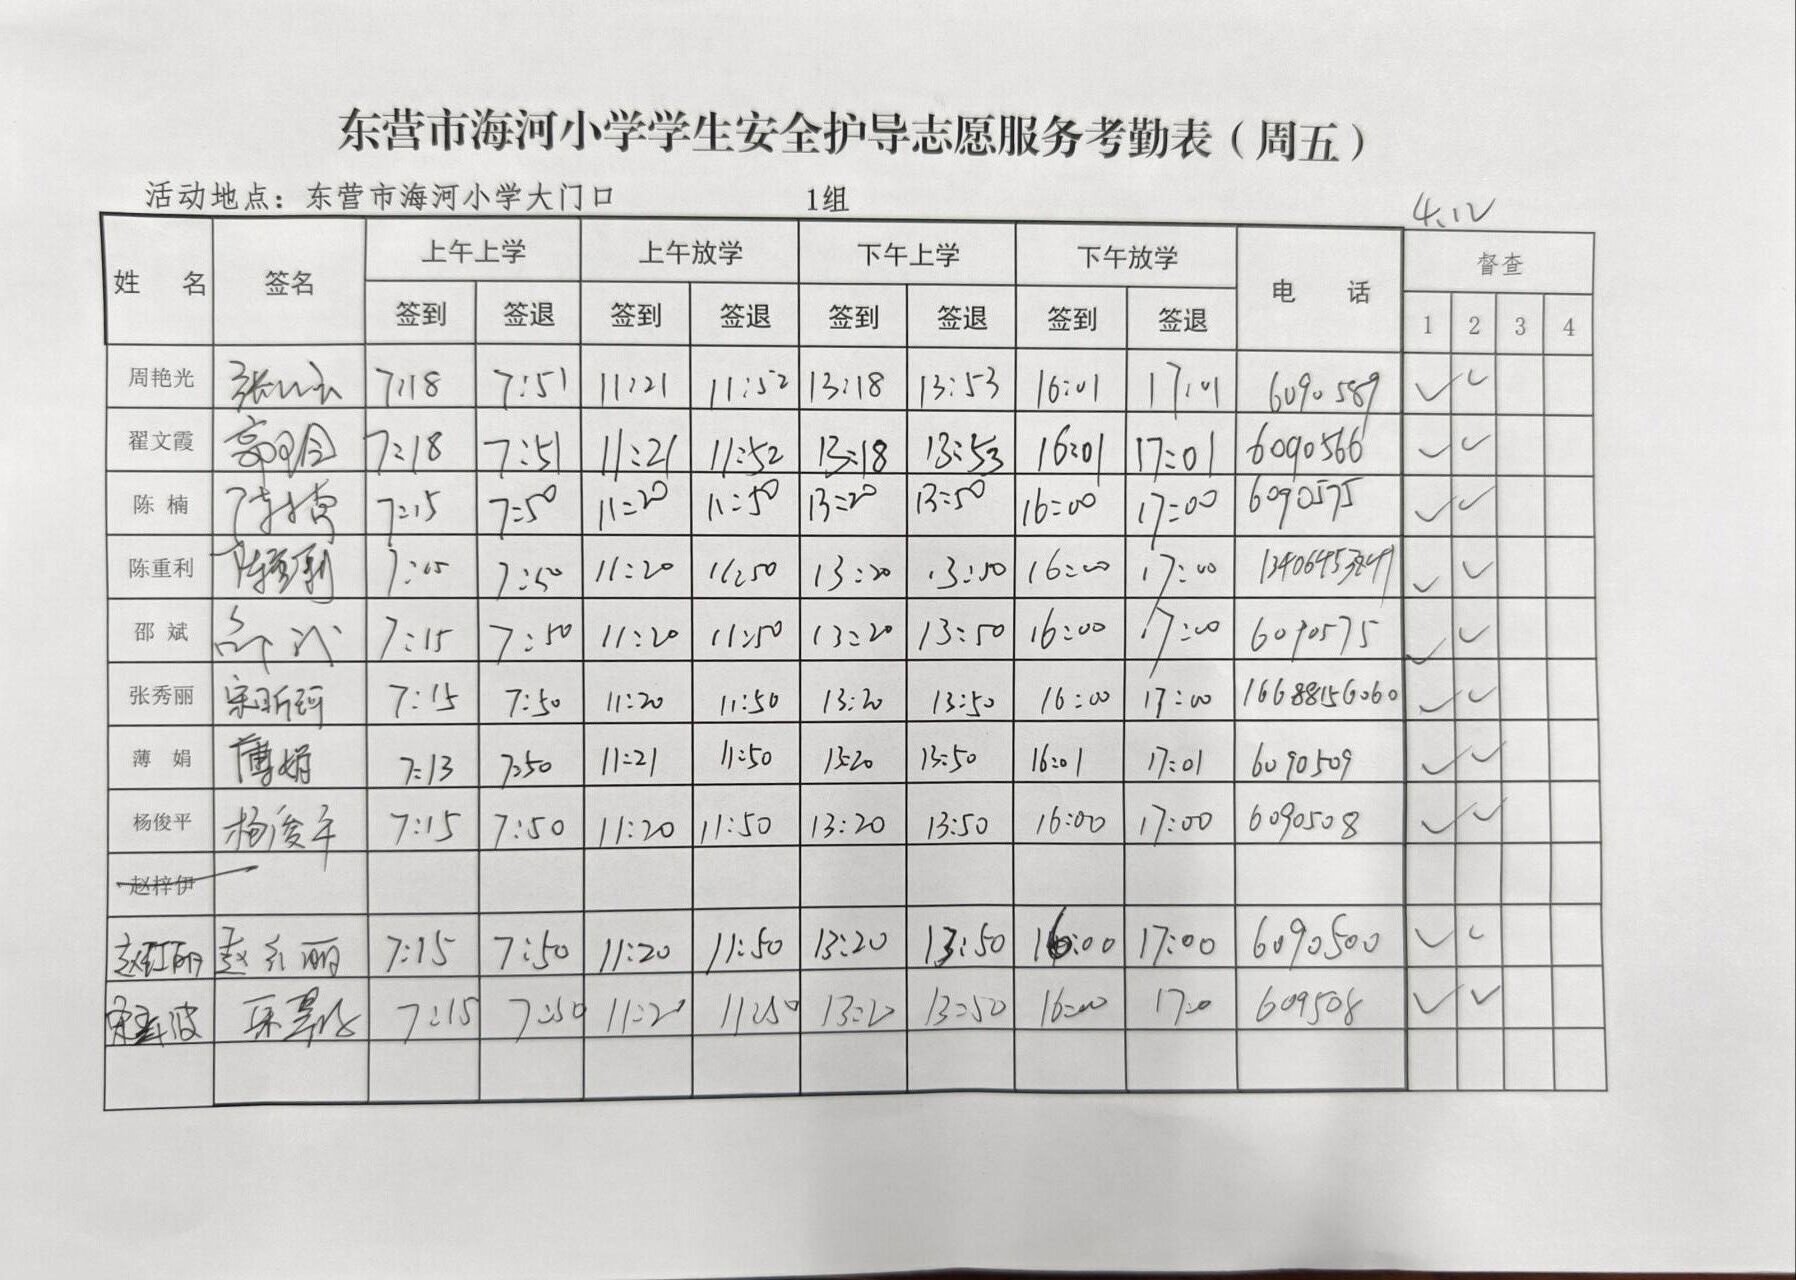 东营市海河小学学生安全护导志愿服务考勤表（周五）
活动地点：东营市海河小学大门口 1组 4.12
姓 名 签名 上午上学 上午放学 下午上学 下午放学 电 话 督查
签到 签退 签到 签退 签到 签退 签到 签退 1 2 3 4
周艳光 7:18 7:51 11:21 11:52 13:18 13:53 16:01 17:01 6090589 ✓ ✓
翟文霞 7:18 7:51 11:21 11:52 13:18 13:53 16:01 17:01 6090566 ✓ ✓
陈 楠 陈楠 7:15 7:50 11:20 11:50 13:20 13:50 16:00 17:00 6090575 ✓ ✓
陈重利 陈重利 7:15 7:50 11:20 11:50 13:20 13:50 16:00 17:00 ✓ ✓
邵 斌 邵斌 7:15 7:50 11:20 11:50 13:20 13:50 16:00 17:00 6090575 ✓ ✓
张秀丽 7:15 7:50 11:20 11:50 13:20 13:50 16:00 17:00 16688156060 ✓ ✓
薄 娟 薄娟 7:13 7:50 11:21 11:50 13:20 13:50 16:01 17:01 6090509 ✓ ✓
杨俊平 杨俊平 7:15 7:50 11:20 11:50 13:20 13:50 16:00 17:00 6090508 ✓ ✓
赵梓伊
赵红丽 赵红丽 7:15 7:50 11:20 11:50 13:20 13:50 16:00 17:00 6090500 ✓ ✓
7:15 7:50 11:20 11:50 13:20 13:50 16:00 17:0 609508 ✓ ✓